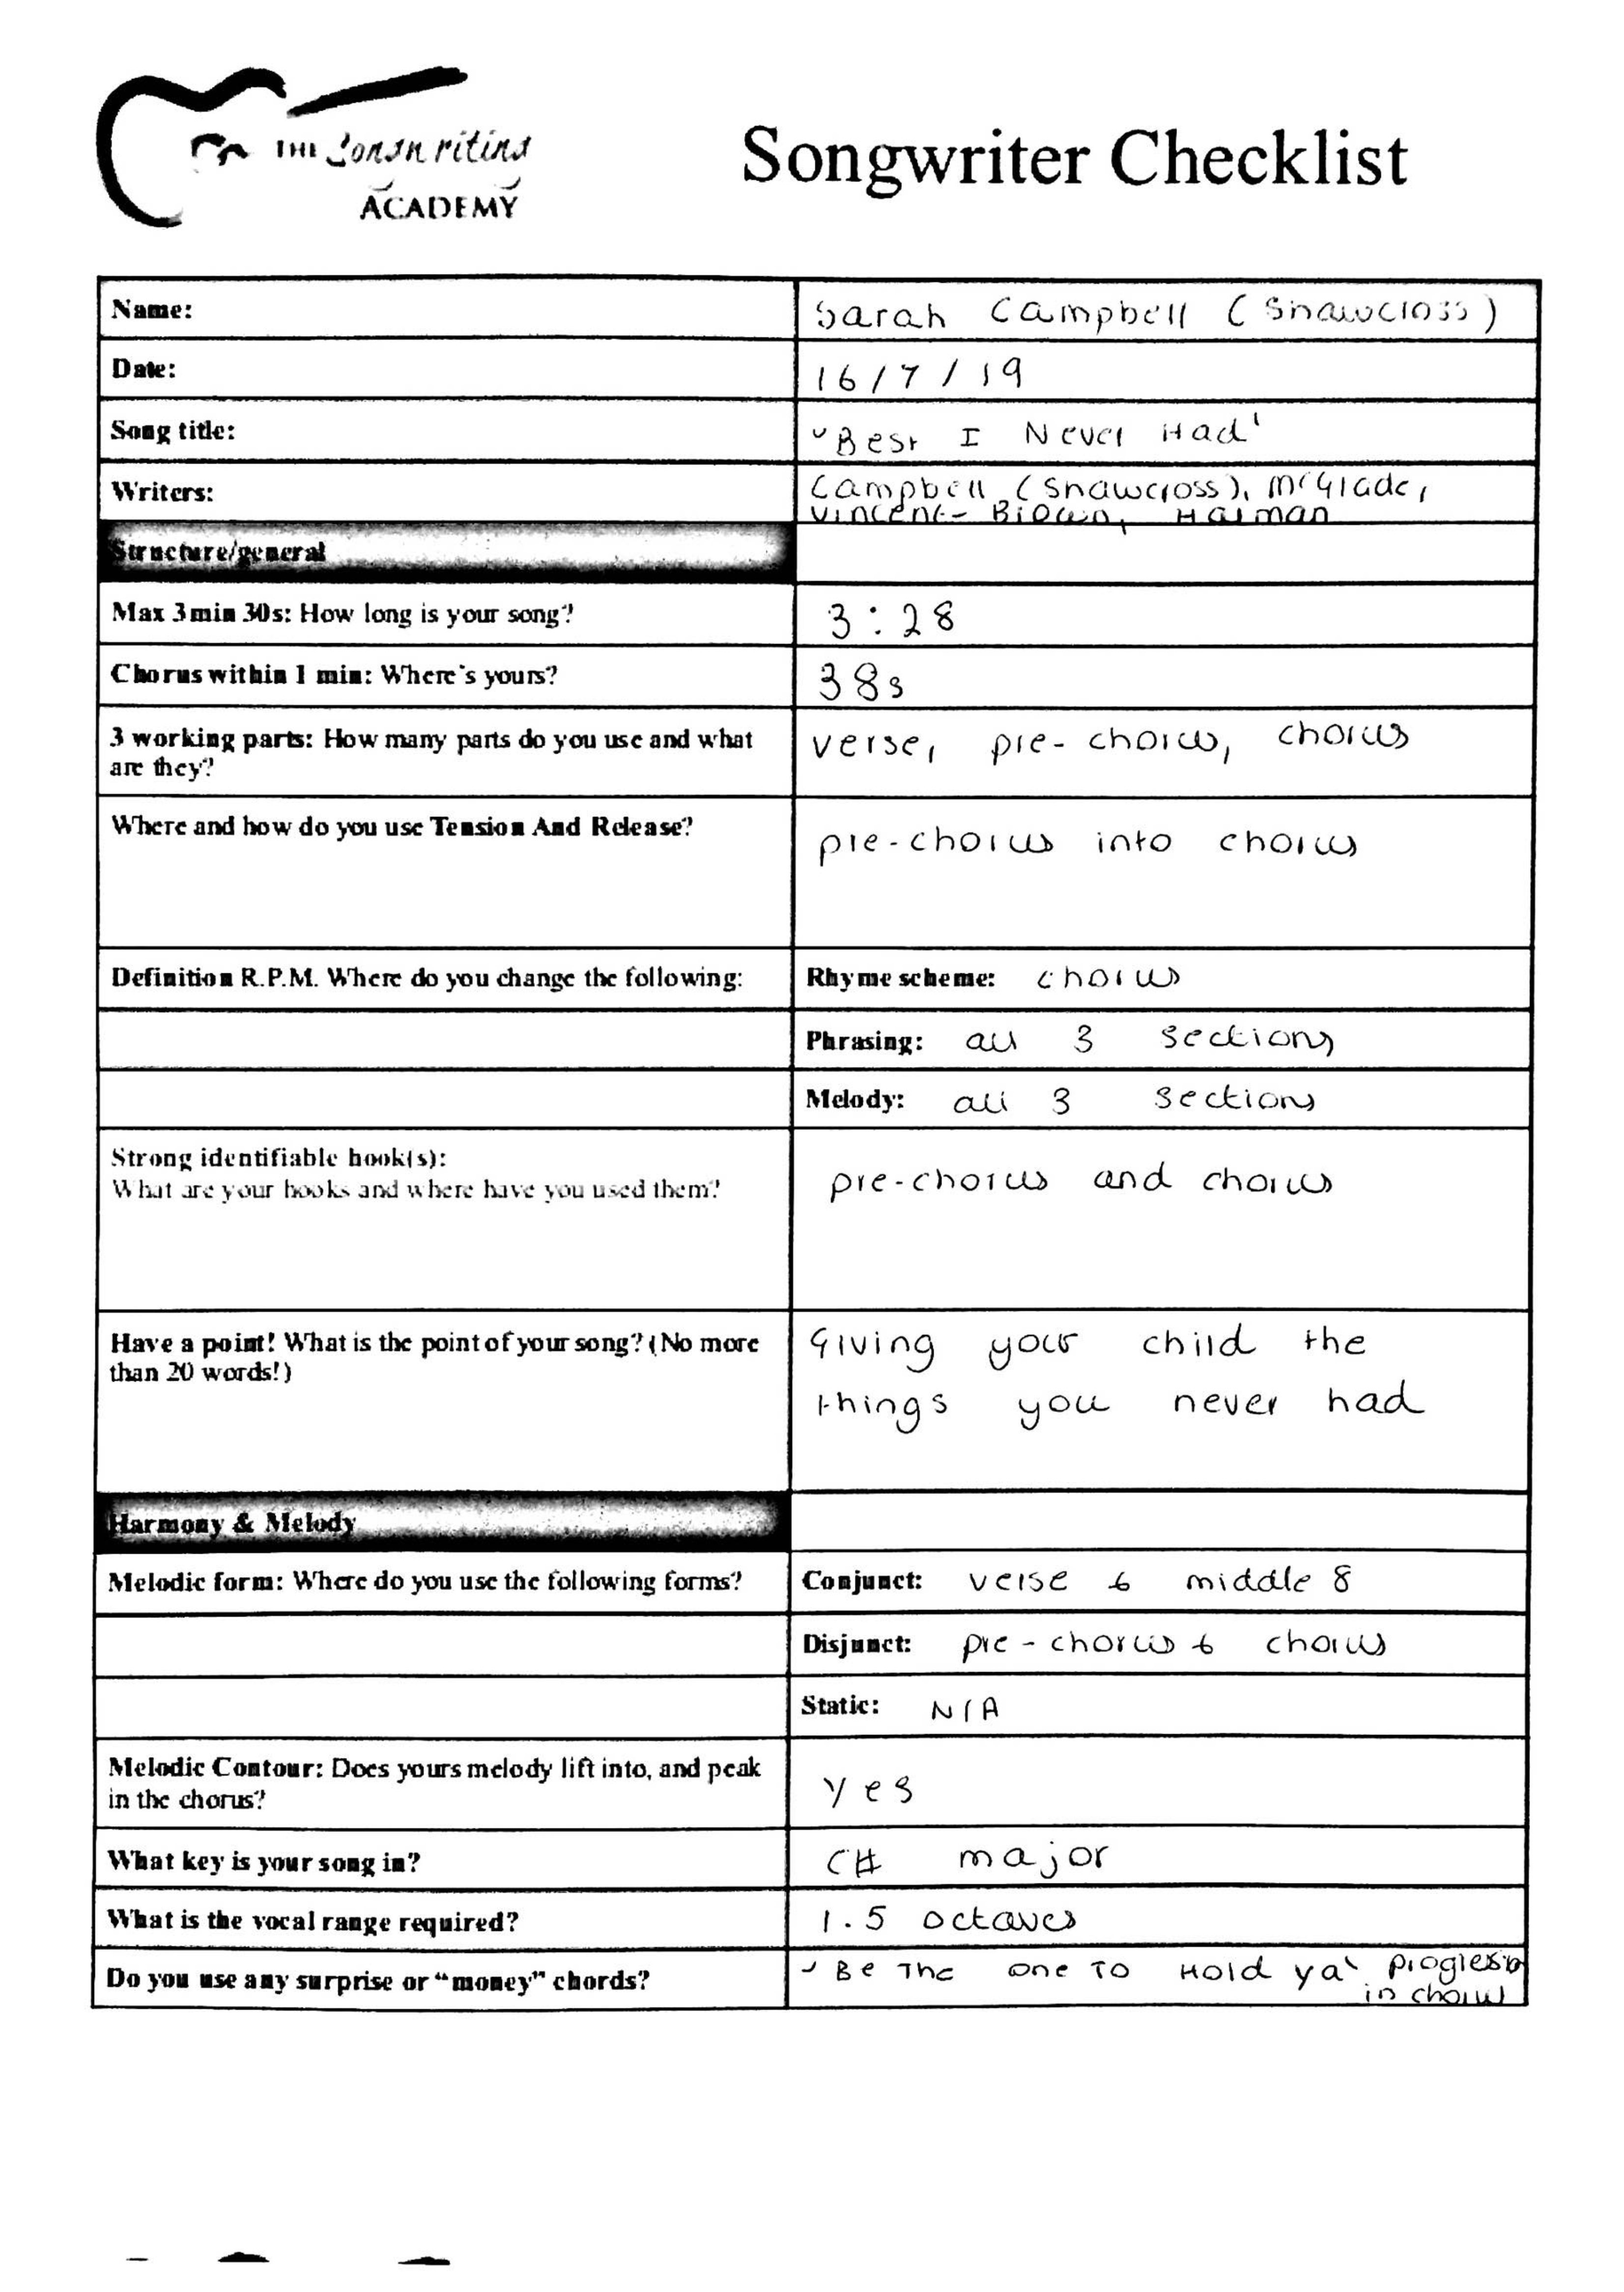 THE Songwriting
ACADEMY
Songwriter Checklist
Name: Sarah Campbell (Shawcross)
Date: 16/7/19
Song title: 'Best I Never Had'
Writers: Campbell (Shawcross), McGlade,
Vincent-Brown, Harman
Structure/general
Max 3min 30s: How long is your song? 3:28
Chorus within 1 min: Where's yours? 38s
3 working parts: How many parts do you use and what verse, pre-chorus, chorus
are they?
Where and how do you use Tension And Release? pre-chorus into chorus
Definition R.P.M. Where do you change the following: Rhyme scheme: chorus
Phrasing: all 3 sections
Melody: all 3 sections
Strong identifiable hook(s):
What are your hooks and where have you used them? pre-chorus and chorus
Have a point! What is the point of your song? (No more Giving your child the
than 20 words!) things you never had
Harmony & Melody
Melodic form: Where do you use the following forms? Conjunct: verse & middle 8
Disjunct: pre-chorus & chorus
Static: N/A
Melodic Contour: Does yours melody lift into, and peak yes
in the chorus?
What key is your song in? C# major
What is the vocal range required? 1.5 octaves
Do you use any surprise or "money" chords? 'Be The one To Hold ya'
in chorus